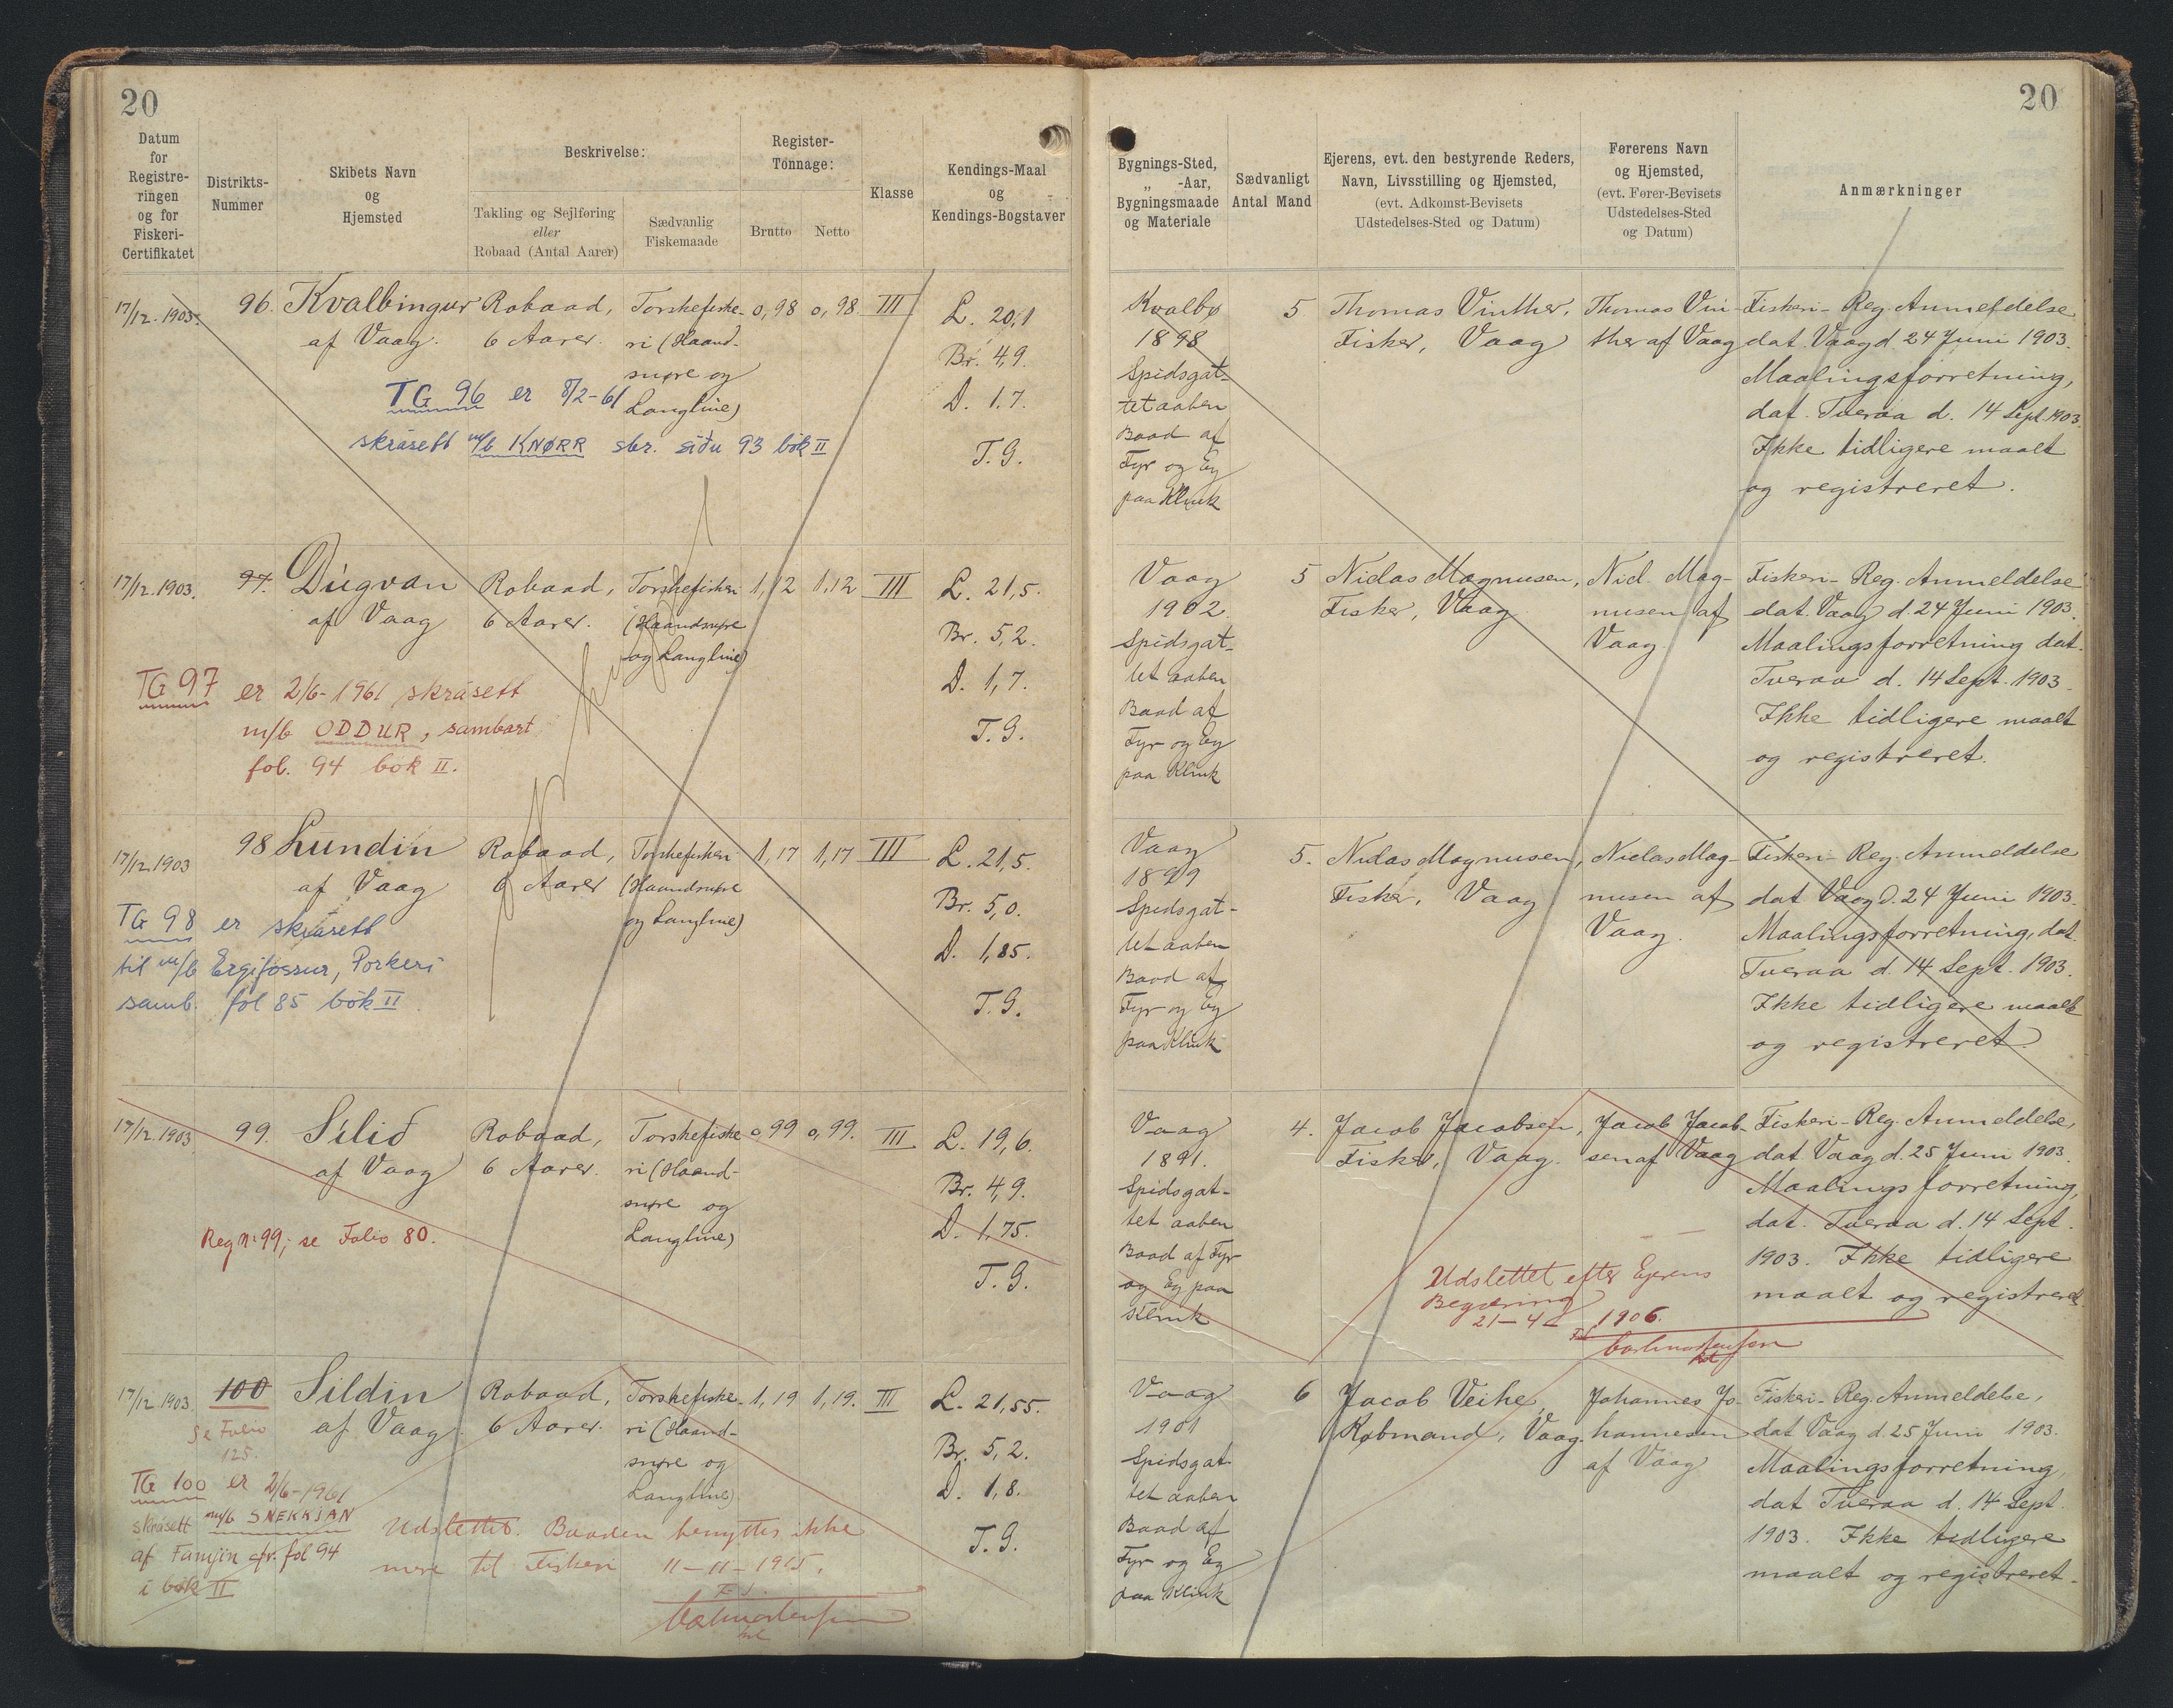 20
Datum
for
Registre-
ringen
og for
Fiskeri-
Certifikatet
Distrikts-
Nummer
Skibets Navn
og
Hjemsted
Beskrivelse:
Takling og Sejlføring
eller
Robaad (Antal Aarer)
Sædvanlig
Fiskemaade
Register-
Tonnage:
Brutto
Netto
Klasse
Kendings-Maal
og
Kendings-Bogstaver
17/12. 1903.
96.
Kvalbingur
af Vaag.
Robaad,
6 Aarer.
Torskefiske-
ri (Haand-
snøre og
Langline)
0,98
0,98
III
L. 20,1
Br. 4,9.
D. 1.7.
T.G.
TG 96 er 8/2-61
skrásett m/b KNØRR sbr. síðu 93 bók II
17/12. 1903.
97.
Dúgvan
af Vaag
Robaad,
6 Aarer.
Torskefiskeri
(Haandsnøre
og Langline)
1,12
1,12
III
L. 21,5.
Br. 5,2.
D. 1,7.
T.G.
TG 97 er 2/6-1961 skrásett
m/b ODDUR, sambart
fol. 94 bók II.
17/12. 1903
98
Lundin
af Vaag
Robaad,
6 Aarer
Torskefiskeri
(Haandsnøre
og Langline)
1,17
1,17
III
L. 21,5.
Br. 5,0.
D. 1,85.
T.G.
TG 98 er skrásett
til m/b Ergifossur, Porkeri
samb. fol 85 bók II
17/12. 1903
99.
Silið
af Vaag
Robaad,
6 Aarer.
Torskefiske-
ri (Haand-
snøre og
Langline)
0,99
0,99.
III
L. 19,6.
Br. 4,9.
D. 1,75.
T.G.
Reg Nr 99, se Folio 80.
17/12. 1903.
100
Sildin
af Vaag.
Robaad,
6 Aarer.
Torskefiske-
ri (Haand-
snøre og
Langline)
1,19
1,19.
III
L. 21,55.
Br. 5,2.
D. 1,8.
T.G.
Se Folio
125.
TG 100 er 2/6-1961
skrásett m/b SNEKKJAN
af Famjin cfr. fol 94
i bók II
Udslettet. Baaden benyttes ikke
mere til Fiskeri 11-11-1915.
20
Bygnings-Sted,
„ -Aar,
Bygningsmaade
og Materiale
Sædvanligt
Antal Mand
Ejerens, evt. den bestyrende Reders,
Navn, Livsstilling og Hjemsted,
(evt. Adkomst-Bevisets
Udstedelses-Sted og Datum)
Førerens Navn
og Hjemsted,
(evt. Fører-Bevisets
Udstedelses-Sted
og Datum)
Anmærkninger
Kvalbø
1898
Spidsgat-
tet aaben
Baad af
Fyr og Eg
paa Klink
5
Thomas Vinther,
Fisker, Vaag
Thomas Vin-
ther af Vaag
Fiskeri-Reg. Anmeldelse
dat. Vaag d. 24 Juni 1903.
Maalingsforretning,
dat. Tveraa d. 14 Sept. 1903.
Ikke tidligere maalt
og registreret.
Vaag
1902.
Spidsgat-
tet aaben
Baad af
Fyr og Eg
paa Klink
5
Niclas Magnusen,
Fisker, Vaag
Nicl. Mag-
nusen af
Vaag.
Fiskeri-Reg. Anmeldelse
dat. Vaag d. 24 Juni 1903.
Maalingsforretning dat.
Tveraa d. 14 Sept. 1903.
Ikke tidligere maalt
og registreret.
Vaag
1899
Spidsgat-
tet aaben
Baad af
Fyr og Eg
paa Klink
5.
Niclas Magnusen,
Fisker, Vaag
Niclas Mag-
nusen af
Vaag.
Fiskeri-Reg. Anmeldelse
dat Vaag d. 24 Juni 1903.
Maalingsforretning, dat.
Tveraa d. 14 Sept. 1903.
Ikke tidligere maalt
og registreret
Vaag
1891.
Spidsgat-
tet aaben
Baad af Fyr
og Eg paa
Klink
4.
Jacob Jacobsen,
Fisker, Vaag.
Jacob Jacob-
sen af Vaag
Fiskeri-Reg. Anmeldelse,
dat Vaag d. 25 Juni 1903.
Maalingsforretning,
dat. Tveraa d. 14 Sept.
1903. Ikke tidligere
maalt og registreret
Udslettet efter Ejerens
Begæring
21-4 1906.
Vaag
1901
Spidsgat-
tet aaben
Baad af
Fyr og Eg
paa Klink
6
Jacob Veihe,
Købmand, Vaag.
Johannes Jo-
hannesen
af Vaag
Fiskeri-Reg. Anmeldelse,
dat Vaag d. 25 Juni 1903.
Maalingsforretning,
dat Tveraa d. 14 Sept.
1903. Ikke tidligere
maalt og registreret.